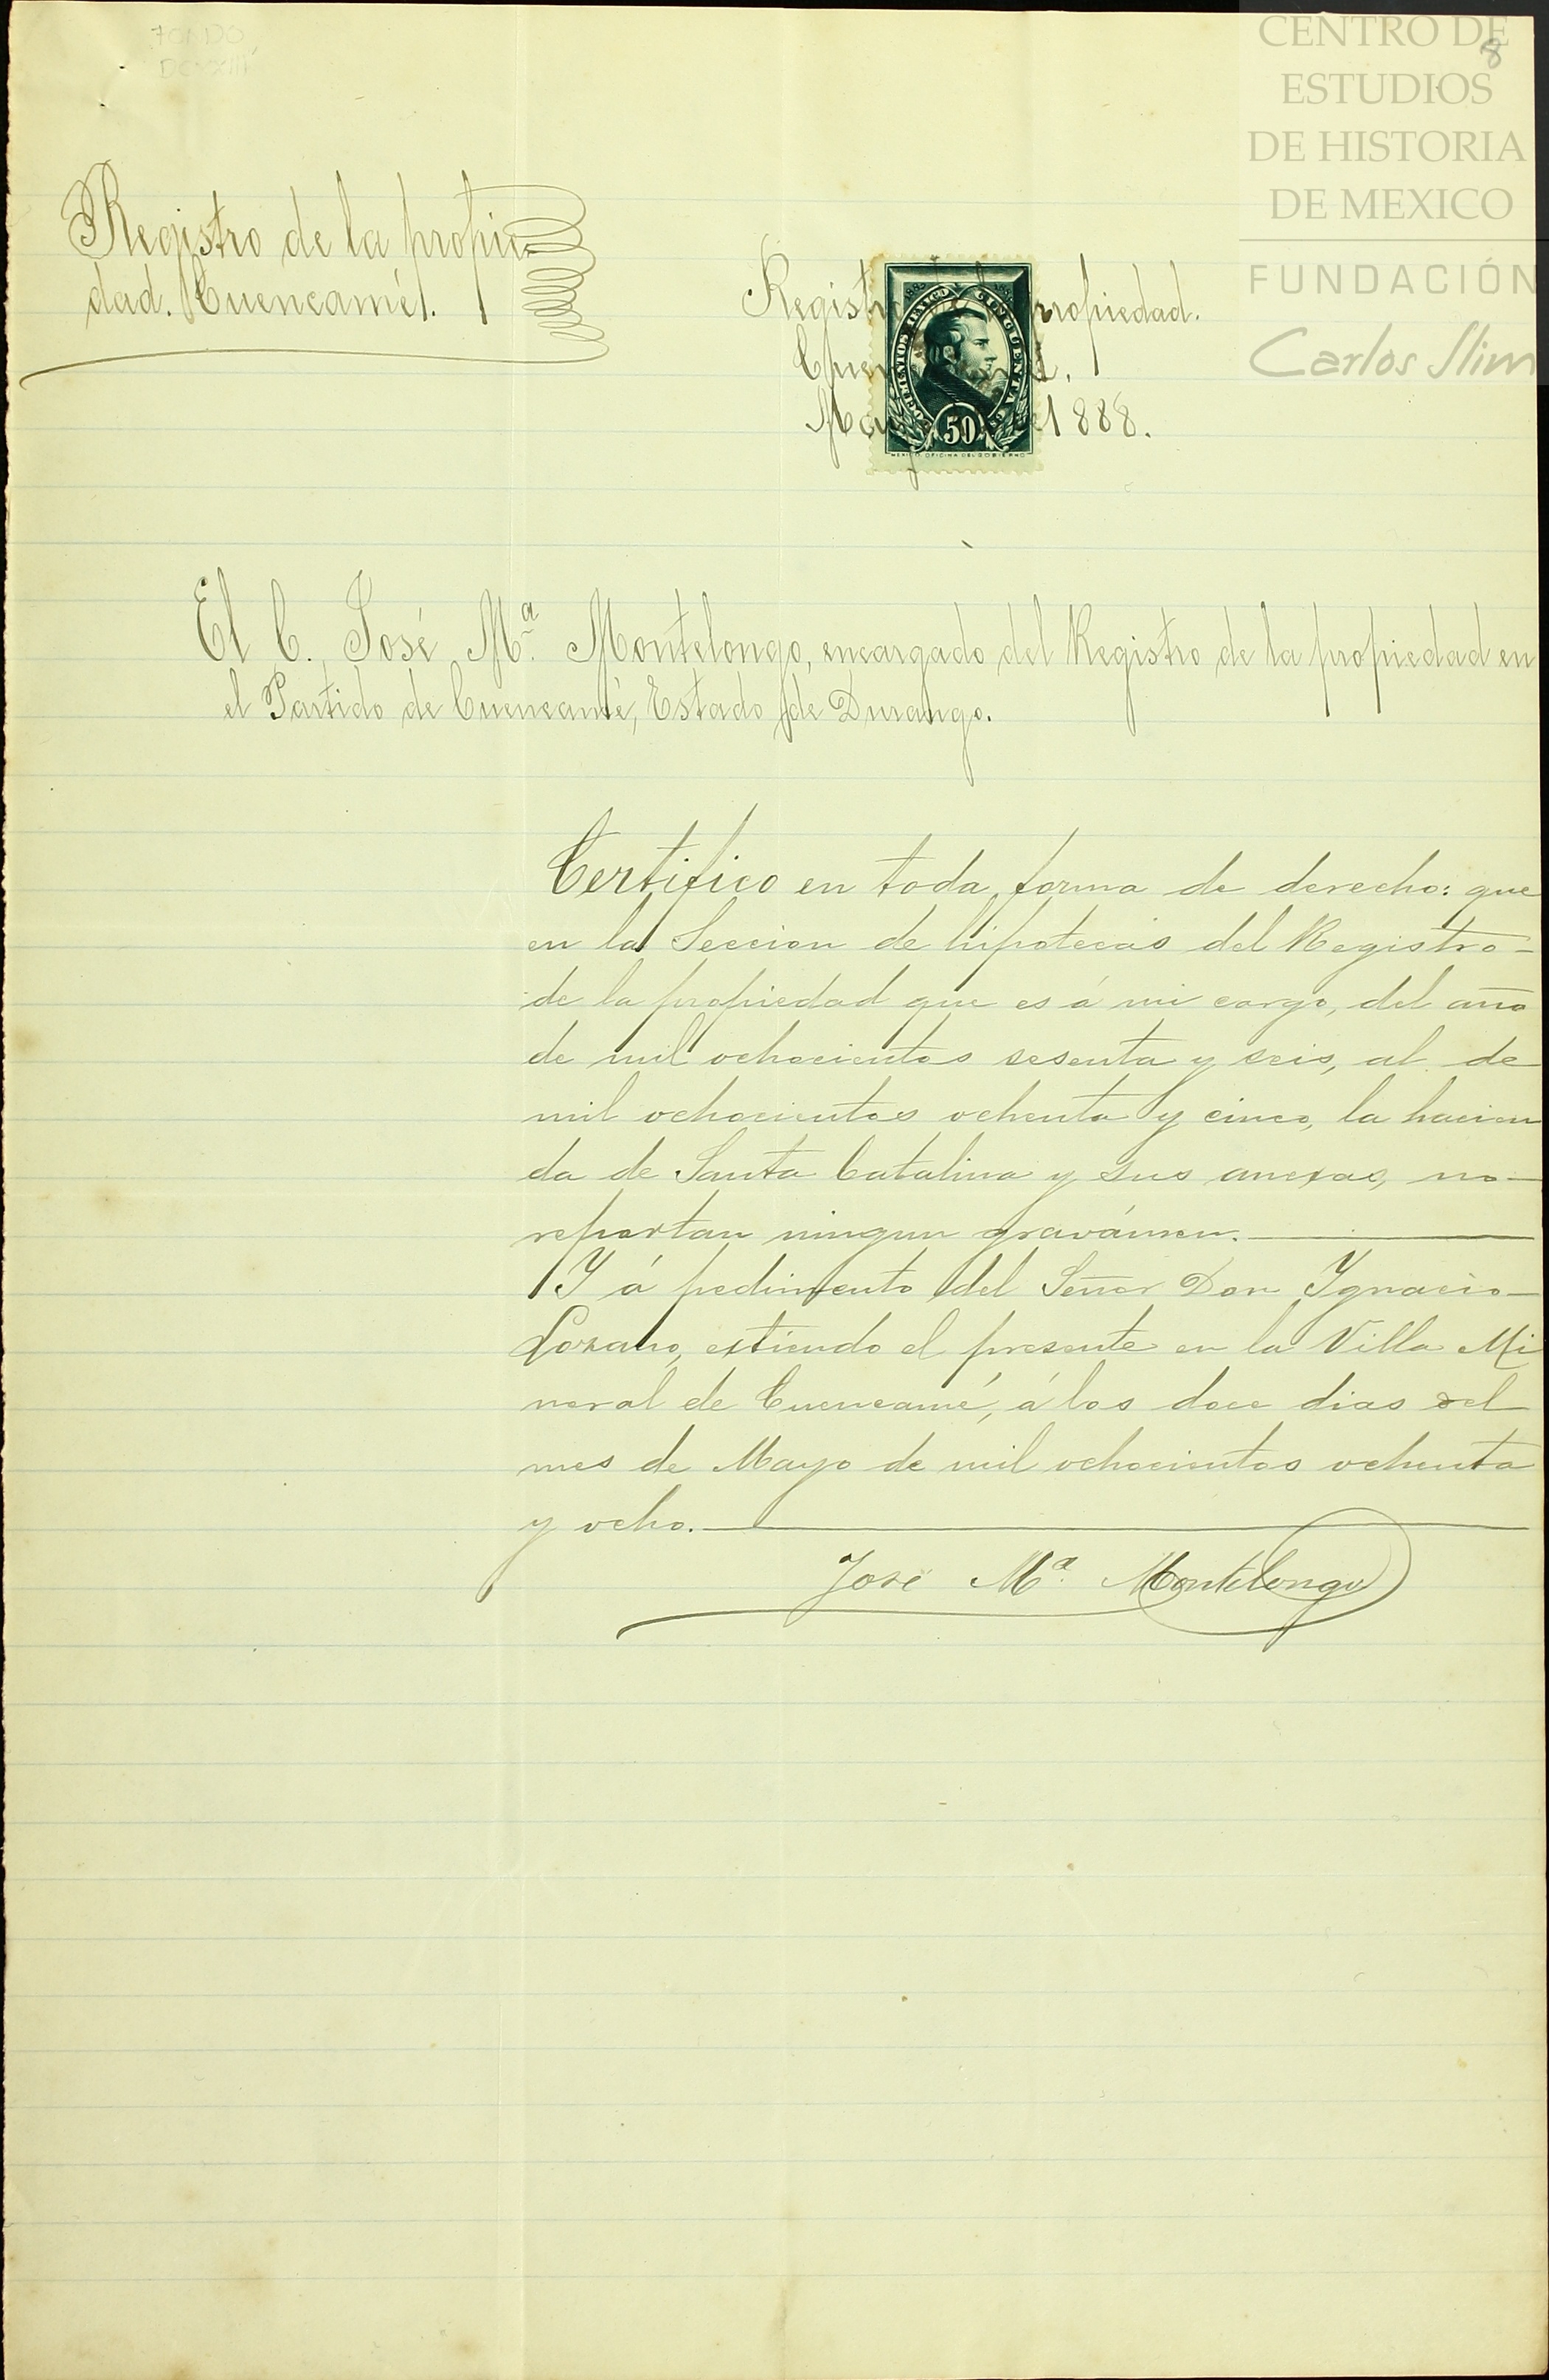 FONDO
DCXXIII
8
CENTRO DE
ESTUDIOS
DE HISTORIA
DE MEXICO
FUNDACIÓN
Carlos Slim
Registro de la propie-
dad. Cuencamé.
Registro propiedad.
Cuen
1888.
DOCUMENTOS MEXICO CINCUENTA CS
50
MEXICO. OFICINA DEL GOBIERNO
El C. José Mª Montelongo, encargado del Registro de la propiedad en
el Partido de Cuencamé, Estado de Durango.
Certifico en toda forma de derecho: que
en la Seccion de hipotecas del Registro-
de la propiedad que es á mi cargo, del año
de mil ochocientos sesenta y seis, al de
mil ochocientos ochenta y cinco, la hacien
da de Santa Catalina y sus anexas, no-
reportan ningun gravámen.
Y á pedimento del Señor Don Ygnacio-
Lozano, extiendo el presente en la Villa Mi
neral de Cuencamé, á los doce dias del
mes de Mayo de mil ochocientos ochenta
y ocho.
José Mª Montelongo